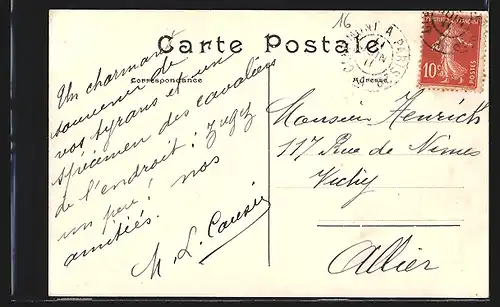 16
Carte Postale
Correspondance
Adresse
10c
POSTES
Un charmant
souvenir de
vos tyrans et un
spécimen des cavaliers
de l'endroit : jugez
un peu ! nos
amitiés.
M. L.
Monsieur Henrich
117 Rue de Nimes
Vichy
Allier